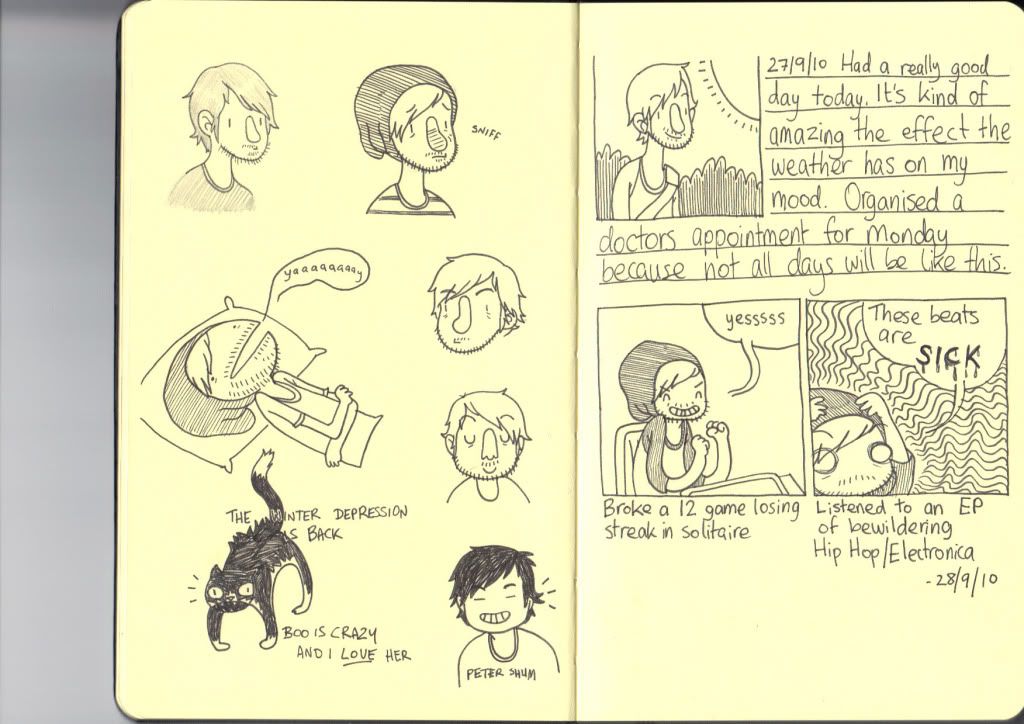 SNIFF
yaaaaaaaay
THE WINTER DEPRESSION
IS BACK
BOO IS CRAZY
AND I LOVE HER
PETER SHUM
27/9/10 Had a really good
day today. It's kind of
amazing the effect the
weather has on my
mood. Organised a
doctors appointment for Monday
because not all days will be like this.
yesssss
Broke a 12 game losing
streak in solitaire
These beats
are
SICK
Listened to an EP
of bewildering
Hip Hop/Electronica
-28/9/10